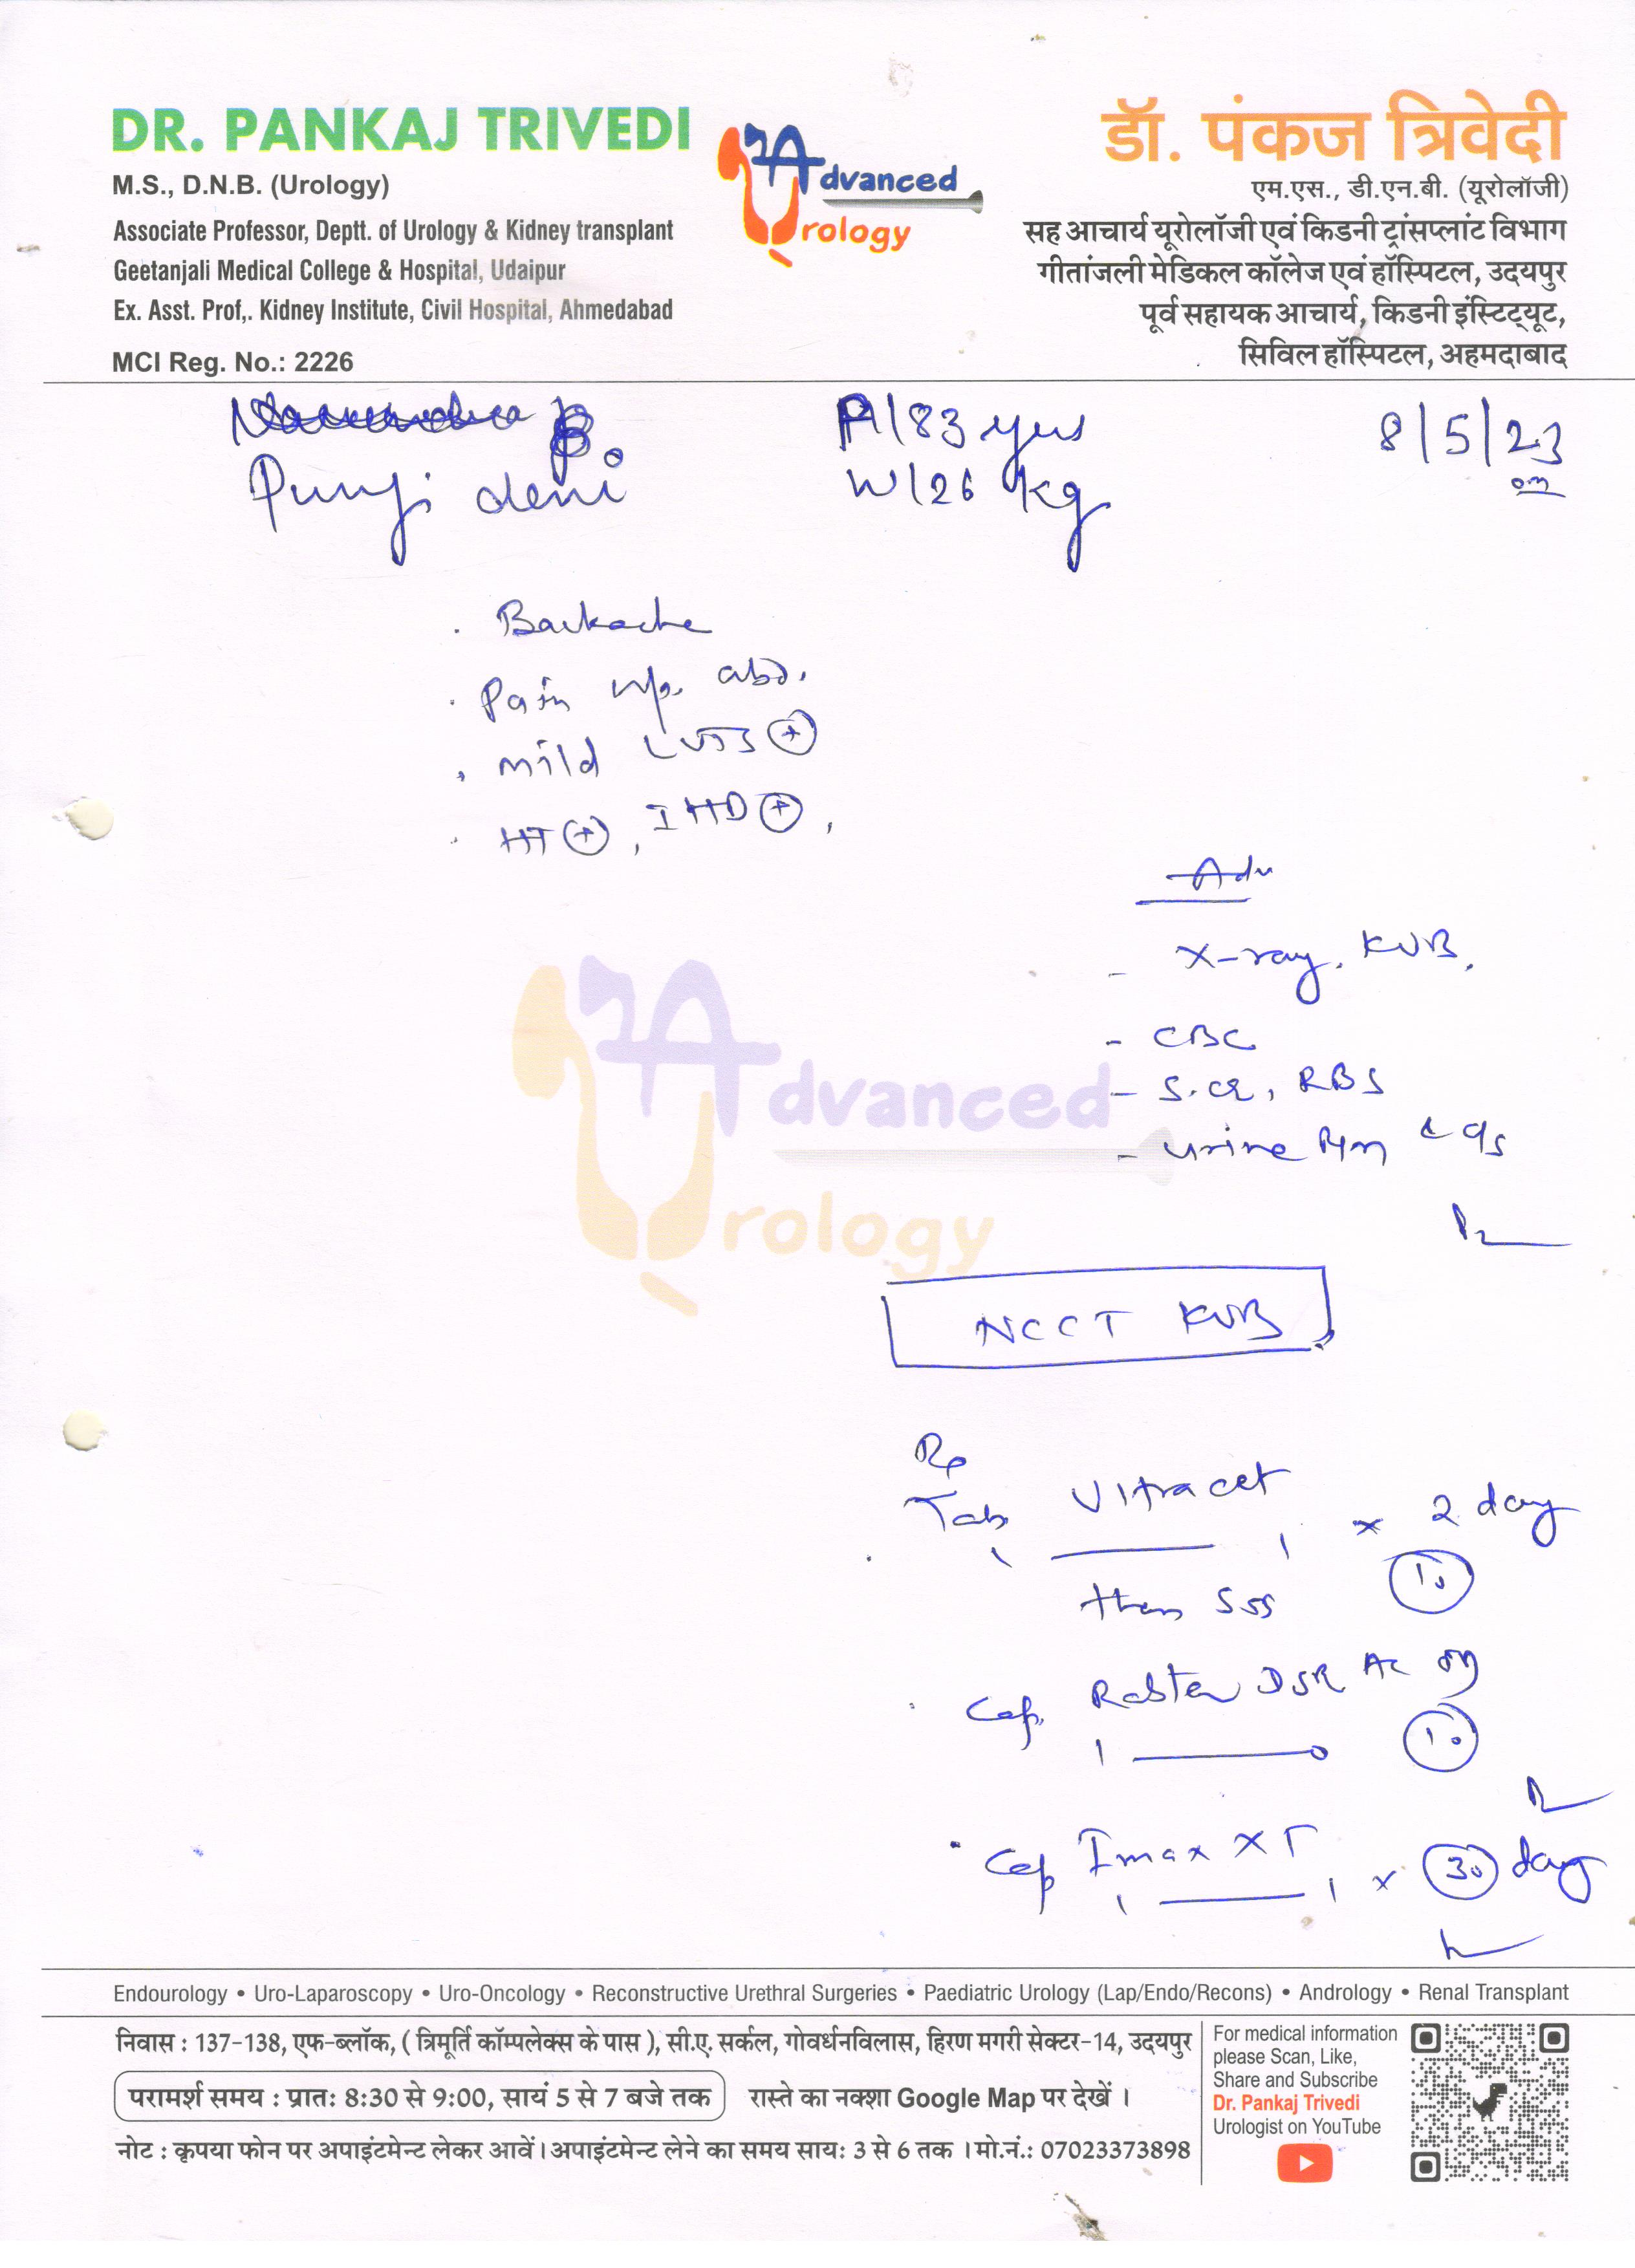 DR. PANKAJ TRIVEDI
M.S., D.N.B. (Urology)
Associate Professor, Deptt. of Urology & Kidney transplant
Geetanjali Medical College & Hospital, Udaipur
Ex. Asst. Prof,. Kidney Institute, Civil Hospital, Ahmedabad
MCI Reg. No.: 2226
Advanced
Urology
डॉ. पंकज त्रिवेदी
एम.एस., डी.एन.बी. (यूरोलॉजी)
सह आचार्य यूरोलॉजी एवं किडनी ट्रांसप्लांट विभाग
गीतांजली मेडिकल कॉलेज एवं हॉस्पिटल, उदयपुर
पूर्व सहायक आचार्य, किडनी इंस्टिट्यूट,
सिविल हॉस्पिटल, अहमदाबाद
/83 yrs
8/5/23
Punji devi
W/26 kg
. Backache
. Pain up. abd.
. mild LUTS (+)
. HT (+), IHD (+),
Adv
- X-ray. KUB.
- CBC
- S. cr, RBS
- urine R/m & c/s
Advanced
Urology
NCCT KUB
Rp
Tab Ultracet
1 — 1 x 2 day
then SOS
(10)
Cap. DSR AC
1 — 0
(10)
Cap Imax XT
1 — 1 x (30) day
Endourology • Uro-Laparoscopy • Uro-Oncology • Reconstructive Urethral Surgeries • Paediatric Urology (Lap/Endo/Recons) • Andrology • Renal Transplant
निवास : 137-138, एफ-ब्लॉक, ( त्रिमूर्ति कॉम्पलेक्स के पास ), सी.ए. सर्कल, गोवर्धनविलास, हिरण मगरी सेक्टर-14, उदयपुर
परामर्श समय : प्रातः 8:30 से 9:00, सायं 5 से 7 बजे तक रास्ते का नक्शा Google Map पर देखें ।
नोट : कृपया फोन पर अपाइंटमेन्ट लेकर आवें। अपाइंटमेन्ट लेने का समय सायः 3 से 6 तक । मो.नं.: 07023373898
For medical information
please Scan, Like,
Share and Subscribe
Dr. Pankaj Trivedi
Urologist on YouTube